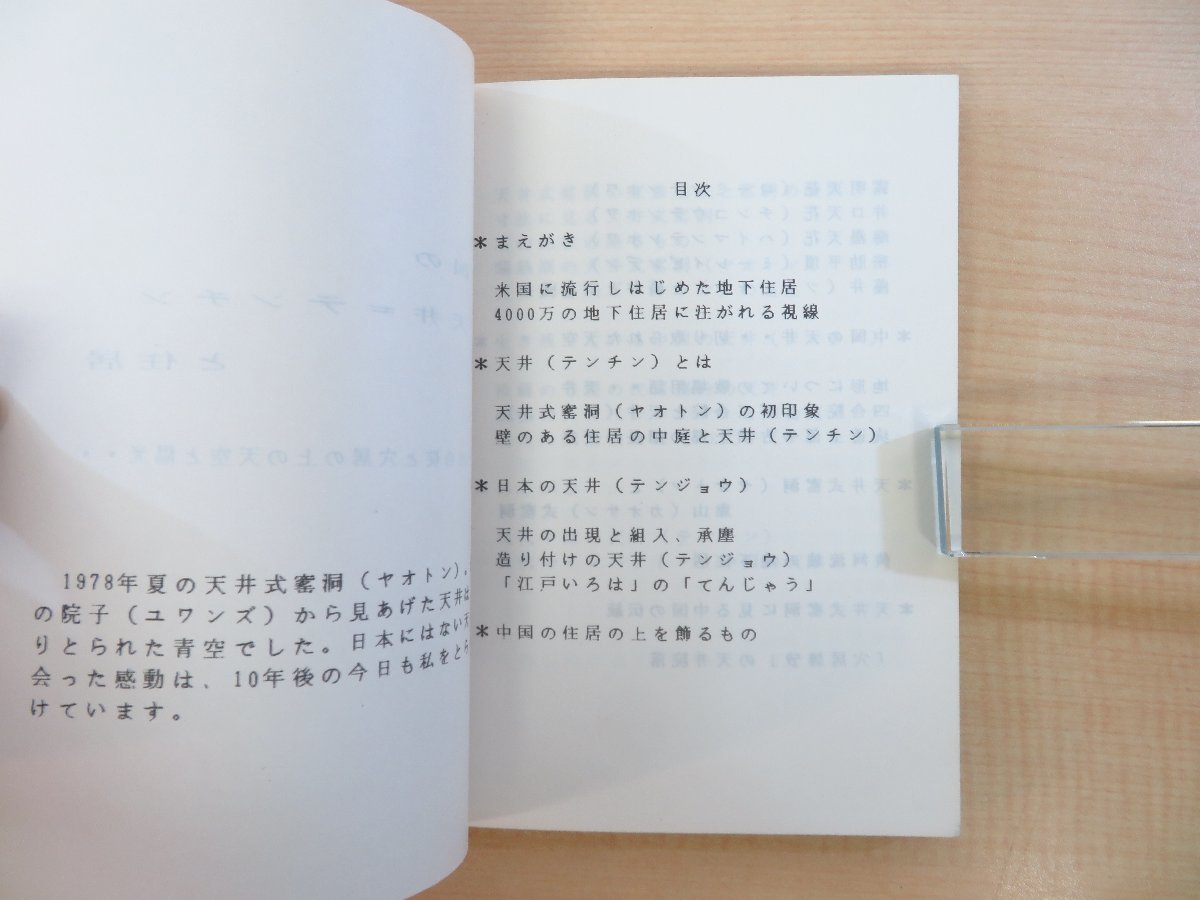 1978年夏の天井式窰洞（ヤオトン）。
の院子（ユワンズ）から見あげた天井は
りとられた青空でした。日本にはない天
会った感動は、10年後の今日も私をとら
けています。
目次
＊まえがき
米国に流行しはじめた地下住居
4000万の地下住居に注がれる視線
＊天井（テンチン）とは
天井式窰洞（ヤオトン）の初印象
壁のある住居の中庭と天井（テンチン）
＊日本の天井（テンジョウ）
天井の出現と組入、承塵
造り付けの天井（テンジョウ）
「江戸いろは」の「てんじゃう」
＊中国の住居の上を飾るもの